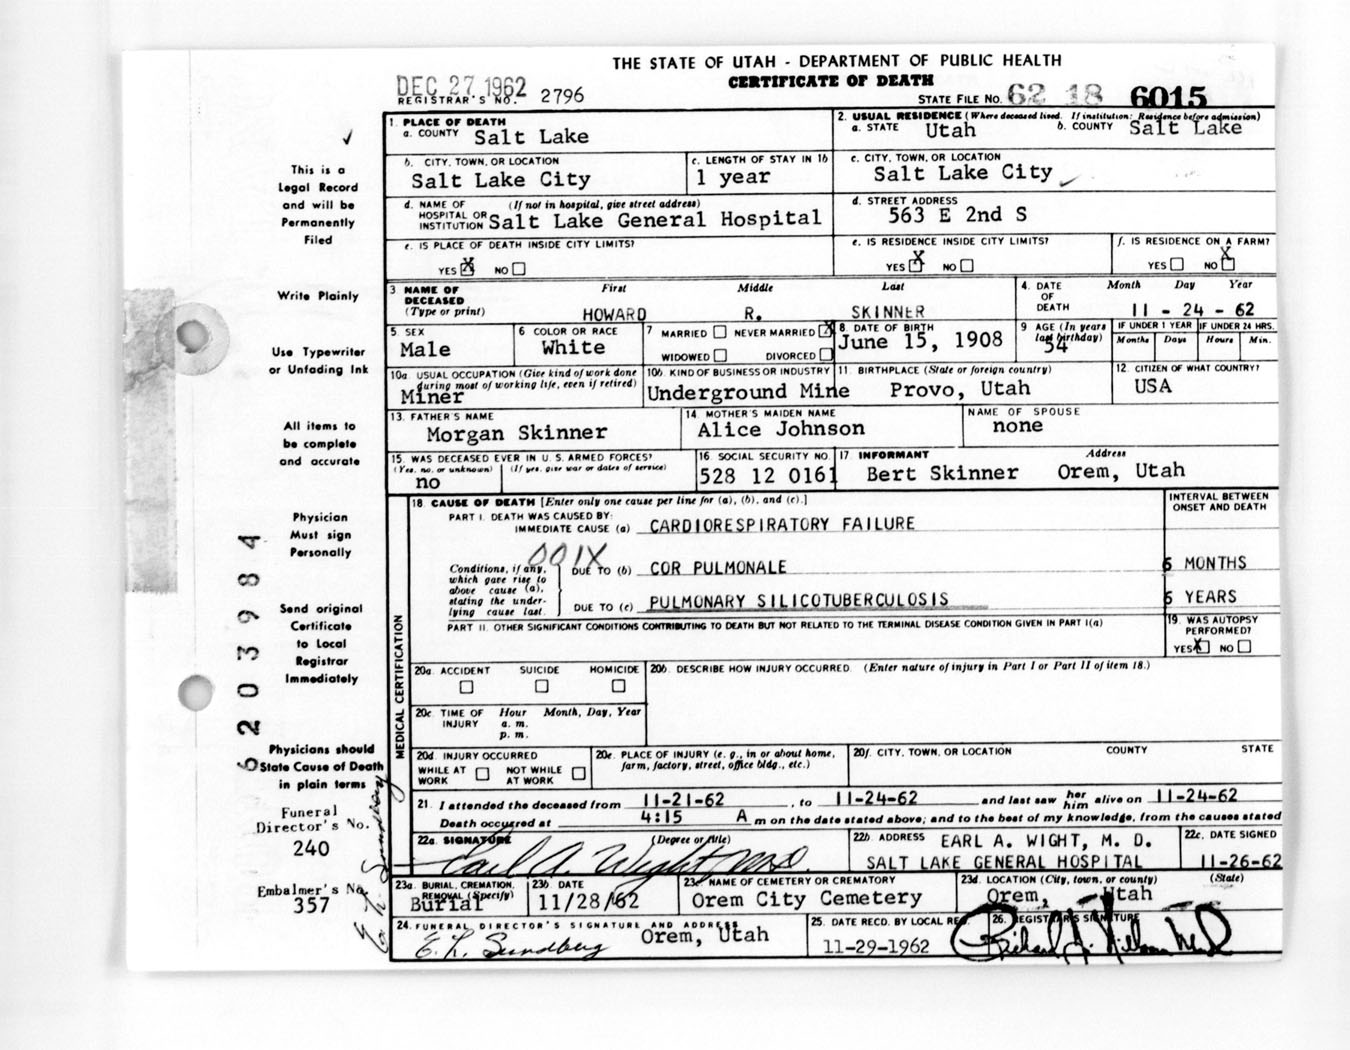 THE STATE OF UTAH - DEPARTMENT OF PUBLIC HEALTH
CERTIFICATE OF DEATH
DEC 27 1962
REGISTRAR'S NO. 2796
STATE FILE NO. 62 18 6015
1. PLACE OF DEATH
a. COUNTY Salt Lake
2. USUAL RESIDENCE (Where deceased lived. If institution: Residence before admission)
a. STATE Utah b. COUNTY Salt Lake
b. CITY, TOWN, OR LOCATION
Salt Lake City
c. LENGTH OF STAY IN 1b
1 year
c. CITY, TOWN, OR LOCATION
Salt Lake City
d. NAME OF (If not in hospital, give street address)
HOSPITAL OR
INSTITUTION Salt Lake General Hospital
d. STREET ADDRESS
563 E 2nd S
e. IS PLACE OF DEATH INSIDE CITY LIMITS?
YES X NO
e. IS RESIDENCE INSIDE CITY LIMITS?
YES X NO
f. IS RESIDENCE ON A FARM?
YES NO X
3 NAME OF
DECEASED
(Type or print)
First Middle Last
HOWARD R. SKINNER
4. DATE
OF
DEATH
Month Day Year
11 - 24 - 62
5 SEX
Male
6 COLOR OR RACE
White
7 MARRIED NEVER MARRIED X
WIDOWED DIVORCED
8. DATE OF BIRTH
June 15, 1908
9 AGE (In years
last birthday)
54
IF UNDER 1 YEAR
Months Days
IF UNDER 24 HRS.
Hours Min.
10a. USUAL OCCUPATION (Give kind of work done
during most of working life, even if retired)
Miner
10b. KIND OF BUSINESS OR INDUSTRY
Underground Mine
11. BIRTHPLACE (State or foreign country)
Provo, Utah
12. CITIZEN OF WHAT COUNTRY?
USA
13. FATHER'S NAME
Morgan Skinner
14. MOTHER'S MAIDEN NAME
Alice Johnson
NAME OF SPOUSE
none
15. WAS DECEASED EVER IN U. S. ARMED FORCES?
(Yes, no, or unknown) (If yes, give war or dates of service)
no
16. SOCIAL SECURITY NO.
528 12 0161
17 INFORMANT Address
Bert Skinner Orem, Utah
18. CAUSE OF DEATH [Enter only one cause per line for (a), (b), and (c).]
INTERVAL BETWEEN
ONSET AND DEATH
PART I. DEATH WAS CAUSED BY:
IMMEDIATE CAUSE (a) CARDIORESPIRATORY FAILURE
001X
Conditions, if any,
which gave rise to
above cause (a),
stating the under-
lying cause last.
DUE TO (b) COR PULMONALE 6 MONTHS
DUE TO (c) PULMONARY SILICOTUBERCULOSIS 6 YEARS
PART II. OTHER SIGNIFICANT CONDITIONS CONTRIBUTING TO DEATH BUT NOT RELATED TO THE TERMINAL DISEASE CONDITION GIVEN IN PART I(a)
19. WAS AUTOPSY
PERFORMED?
YES X NO
MEDICAL CERTIFICATION
20a. ACCIDENT SUICIDE HOMICIDE
20b. DESCRIBE HOW INJURY OCCURRED. (Enter nature of injury in Part I or Part II of item 18.)
20c. TIME OF
INJURY
Hour Month, Day, Year
a. m.
p. m.
20d. INJURY OCCURRED
WHILE AT
WORK
NOT WHILE
AT WORK
20e. PLACE OF INJURY (e. g., in or about home,
farm, factory, street, office bldg., etc.)
20f. CITY, TOWN, OR LOCATION COUNTY STATE
21. I attended the deceased from 11-21-62, to 11-24-62 and last saw her him alive on 11-24-62
Death occurred at 4:15 A m on the date stated above; and to the best of my knowledge, from the causes stated
22a. SIGNATURE (Degree or title)
Earl A. Wight MD.
22b. ADDRESS EARL A. WIGHT, M. D.
SALT LAKE GENERAL HOSPITAL
22c. DATE SIGNED
11-26-62
23a. BURIAL, CREMATION,
REMOVAL (Specify)
Burial
23b. DATE
11/28/62
23c NAME OF CEMETERY OR CREMATORY
Orem City Cemetery
23d. LOCATION (City, town, or county) (State)
Orem, Utah
24. FUNERAL DIRECTOR'S SIGNATURE AND ADDRESS
E. L. Sundberg Orem, Utah
25. DATE RECD. BY LOCAL REG.
11-29-1962
26. REGISTRAR'S SIGNATURE
This is a
Legal Record
and will be
Permanently
Filed
Write Plainly
Use Typewriter
or Unfading Ink
All items to
be complete
and accurate
Physician
Must sign
Personally
Send original
Certificate
to Local
Registrar
Immediately
Physicians should
State Cause of Death
in plain terms
Funeral
Director's No.
240
Embalmer's No.
357
E. L. Sundberg
6203984